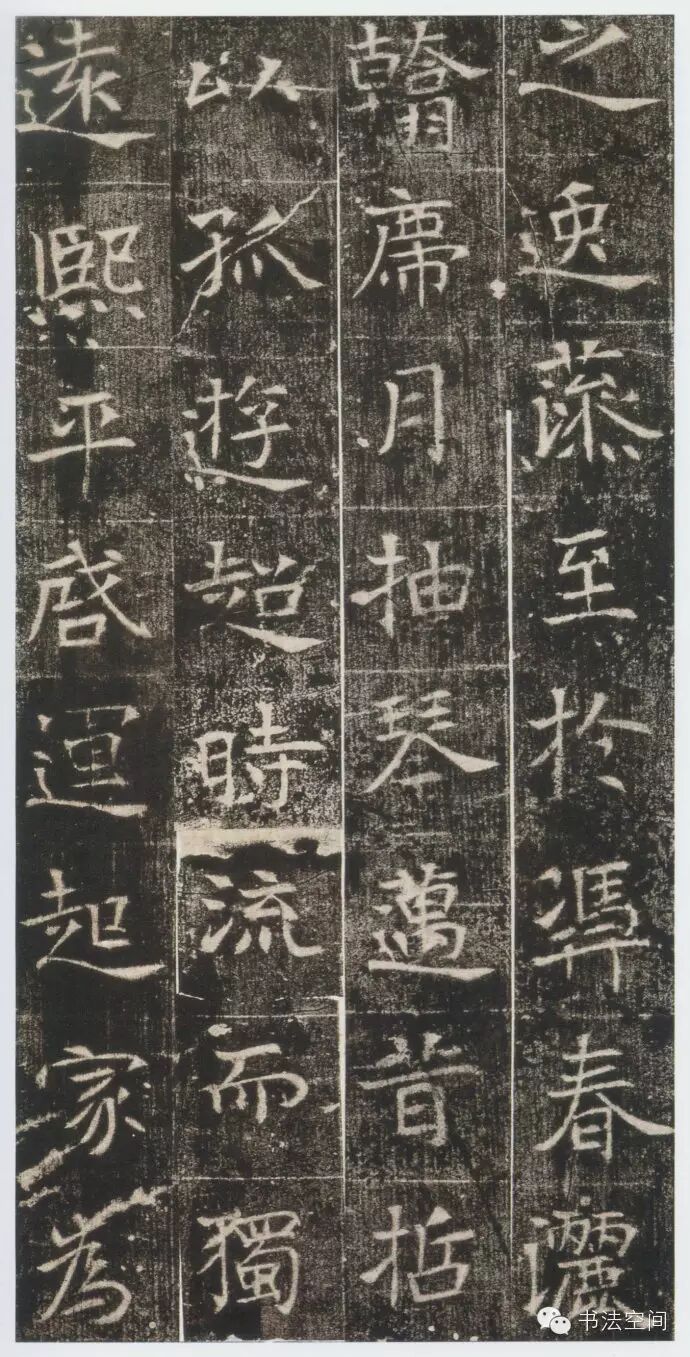 之逸藻至於憑春灑
翰席月抽琴邁昔哲
以孤遊超時流而獨
遠熙平啓運起家為
书法空间